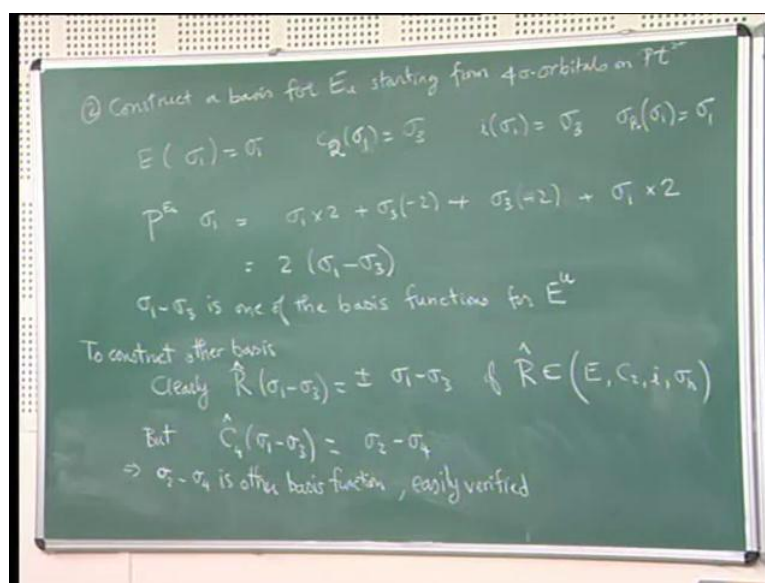 ② Construct a basis for Eu starting form 4σ-orbitals on Pt²⁺
E(σ₁) = σ₁ C₂(σ₁) = σ₃ i(σ₁) = σ₃ σₕ(σ₁) = σ₁
P^Eu σ₁ = σ₁×2 + σ₃(-2) + σ₃(-2) + σ₁×2
= 2 (σ₁-σ₃)
σ₁-σ₃ is one of the basis functions for E^u
To construct other basis
Clearly R̂(σ₁-σ₃) = ± σ₁-σ₃ if R̂ ∈ (E, C₂, i, σₕ)
But Ĉ₄(σ₁-σ₃) = σ₂-σ₄
⇒ σ₂-σ₄ is other basis function, easily verified